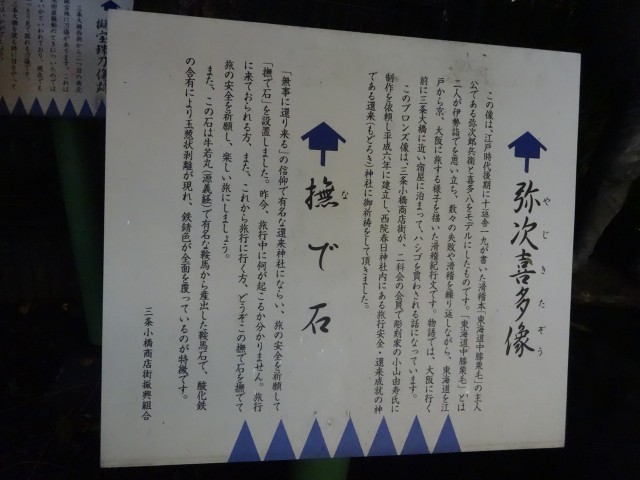 弥次喜多像
やじきたぞう
この像は、江戸時代後期に十返舎一九が書いた滑稽本「東海道中膝栗毛」の主人
公である弥次郎兵衛と喜多八をモデルにしたものです。「東海道中膝栗毛」とは
二人が伊勢詣でを思い立ち、数々の失敗や滑稽を繰り返しながら、東海道を江
戸から京、大阪に旅する様子を描いた滑稽紀行文です。物語では、大阪に行く
前に三条大橋に近い宿屋に泊まって、ハシゴを買わされる話になっています。
このブロンズ像は、三条小橋商店街が、二科会の会員で彫刻家の小山由寿氏に
制作を依頼し平成六年に建立し、西院春日神社内にある旅行安全・還来成就の神
である還来(もどろき)神社に御祈祷をして頂きました。
撫で石
な
「無事に還り来る」の信仰で有名な還来神社にならい、旅の安全を祈願して
「撫で石」を設置しました。昨今、旅行中に何が起こるか分かりません。旅行
に来ておられる方、また、これから旅行に行く方、どうぞこの撫で石を撫でて
旅の安全を祈願し、楽しい旅にしましょう。
また、この石は牛若丸(源義経)で有名な鞍馬から産出した鞍馬石で、酸化鉄
の含有により玉葱状剥離が現れ、鉄錆色が全面を覆っているのが特徴です。
三条小橋商店街振興組合